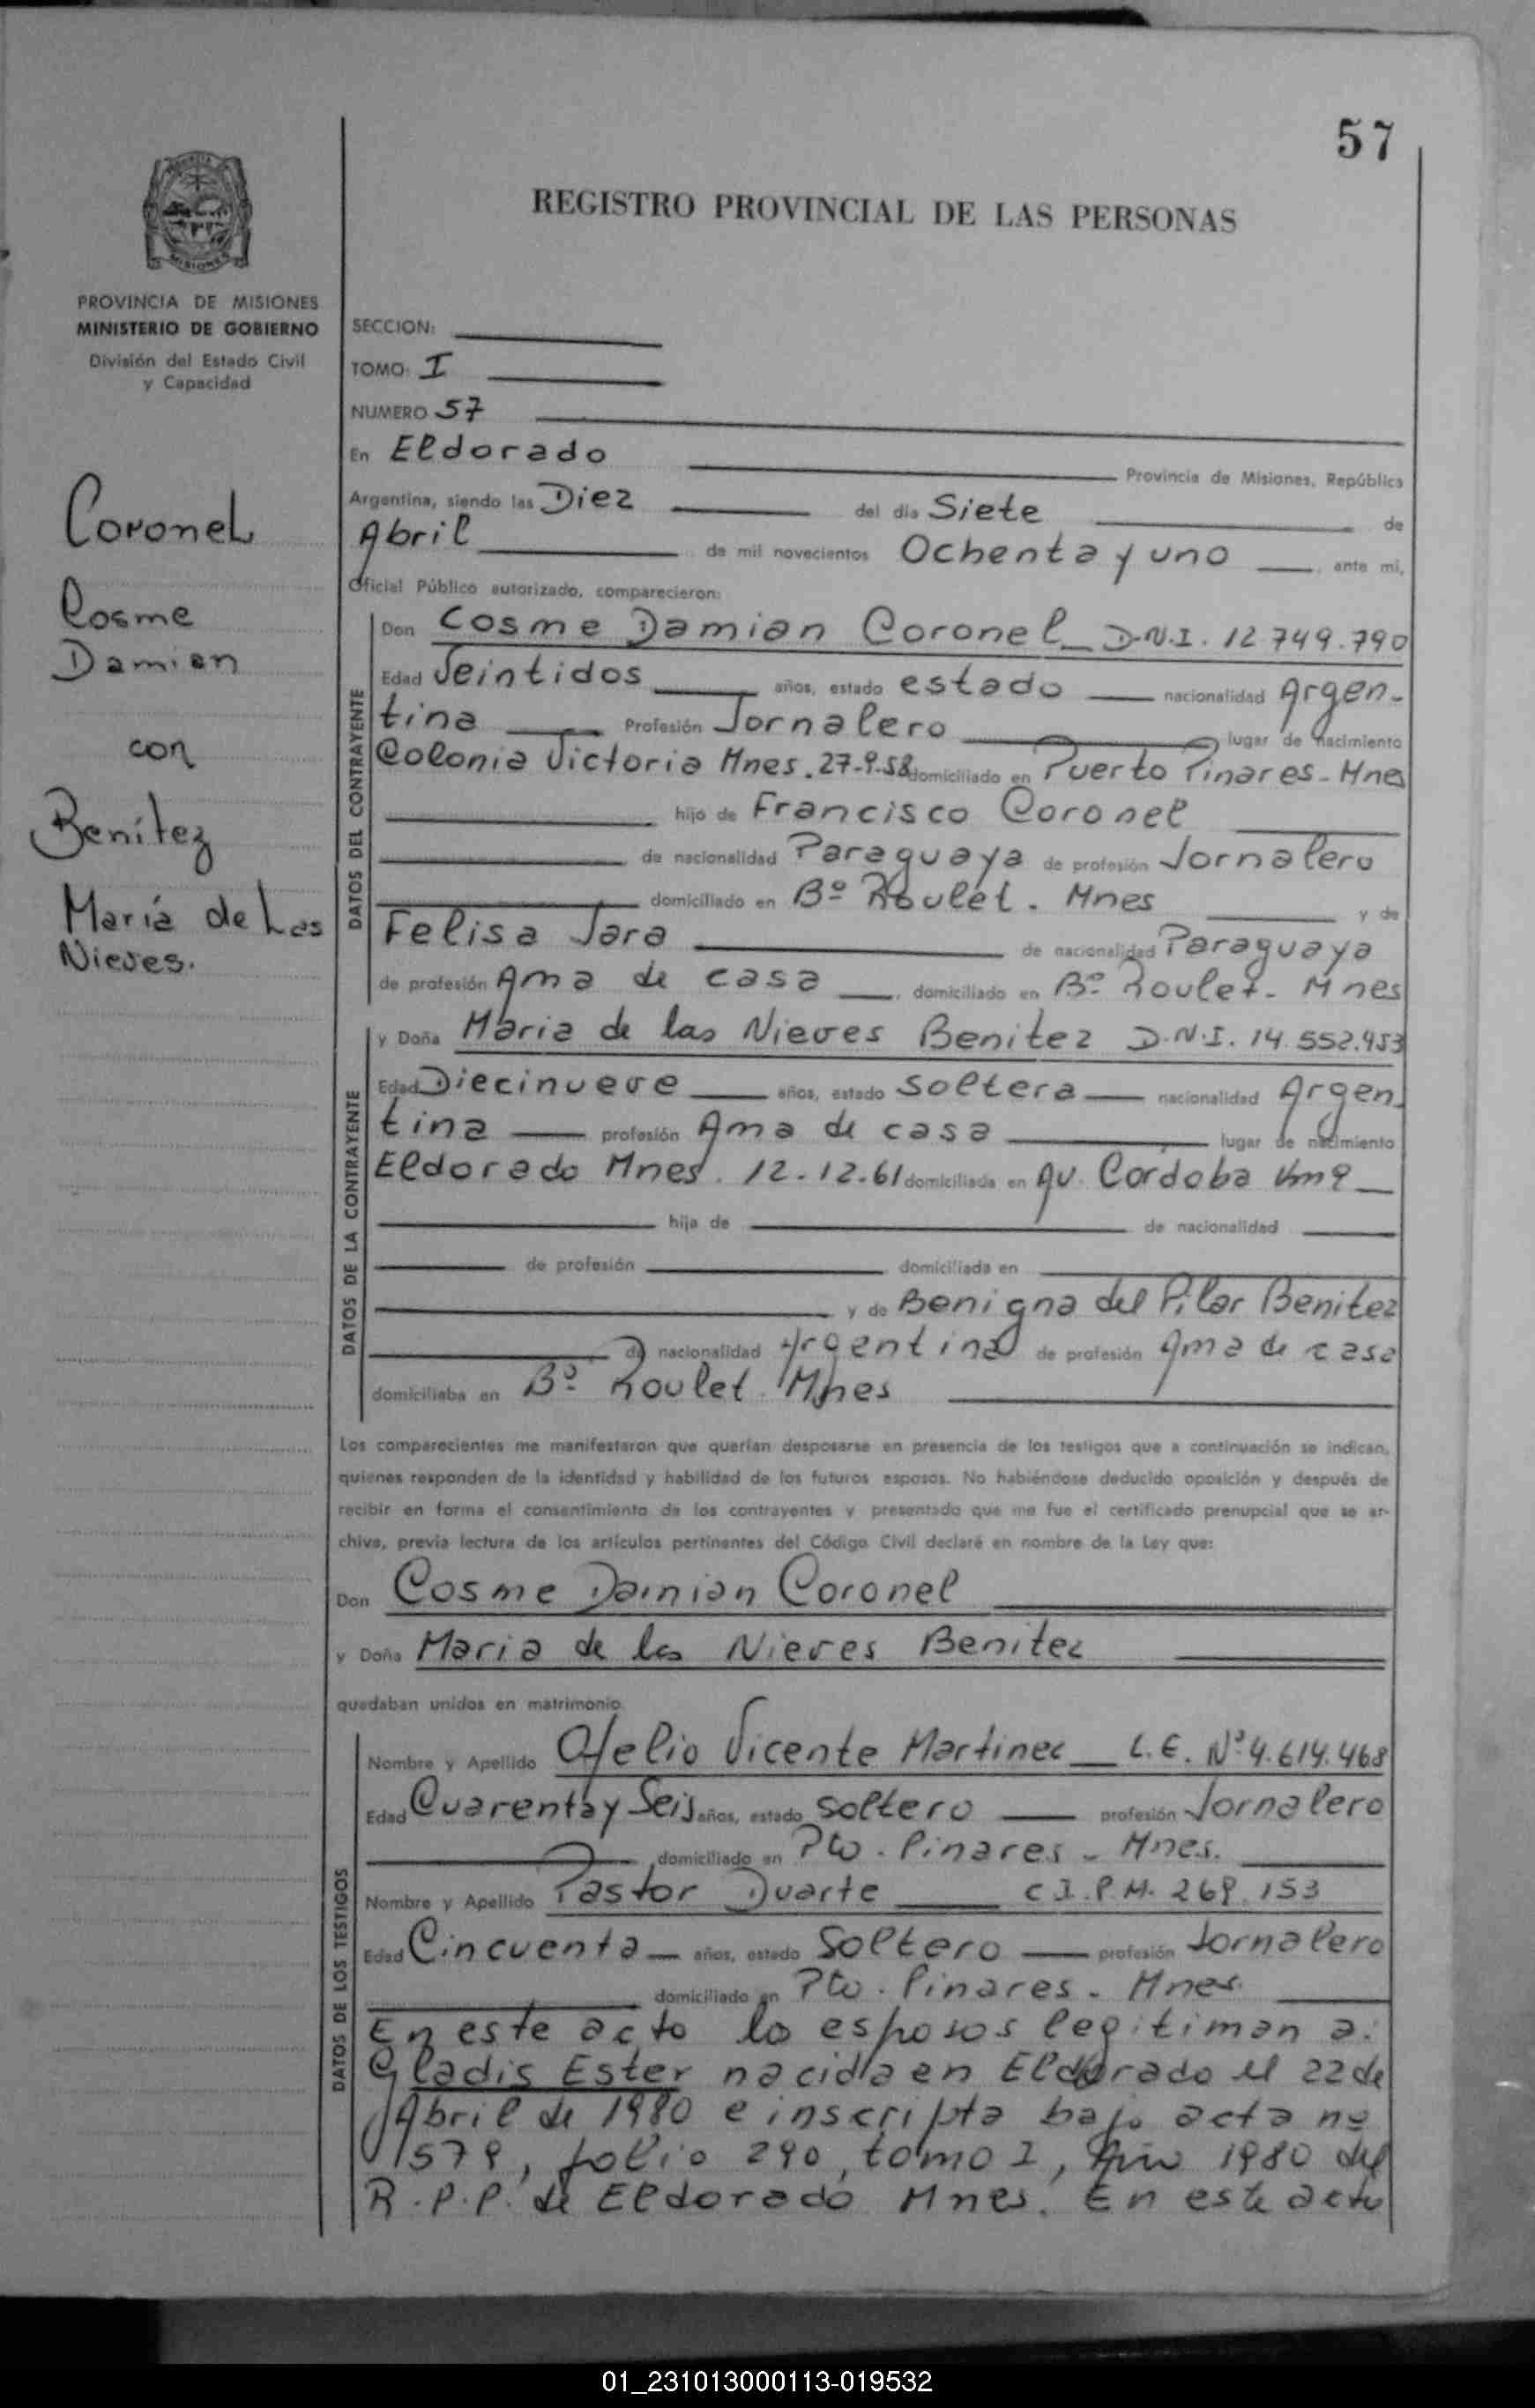 57
REGISTRO PROVINCIAL DE LAS PERSONAS
MISIONES
PROVINCIA DE MISIONES
MINISTERIO DE GOBIERNO
División del Estado Civil
y Capacidad
Coronel
Cosme
Damian
con
Benítez
María de Las
Nieves.
SECCION:
TOMO: I
NUMERO 57
En Eldorado Provincia de Misiones, República
Argentina, siendo las Diez del día Siete de
Abril de mil novecientos Ochenta y uno ante mi,
Oficial Público autorizado, comparecieron:
DATOS DEL CONTRAYENTE
Don Cosme Damian Coronel D.N.I. 12.749.790
Edad Veintidos años, estado estado nacionalidad Argen-
tina Profesión Jornalero lugar de nacimiento
Colonia Victoria Mnes. 27-9-58 domiciliado en Puerto Pinares - Mnes
hijo de Francisco Coronel
de nacionalidad Paraguaya de profesión Jornalero
domiciliado en Bº Roulet. Mnes y de
Felisa Jara de nacionalidad Paraguaya
de profesión Ama de casa, domiciliado en Bº Roulet - Mnes
DATOS DE LA CONTRAYENTE
y Doña Maria de las Nieves Benitez D.N.I. 14.552.953
Edad Diecinueve años, estado soltera nacionalidad Argen-
tina profesión Ama de casa lugar de nacimiento
Eldorado Mnes. 12-12-61 domiciliada en Av. Cordoba Km 9
hija de de nacionalidad
de profesión domiciliada en
y de Benigna del Pilar Benitez
de nacionalidad Argentina de profesión Ama de casa
domiciliaba en Bº Roulet. Mnes
Los comparecientes me manifestaron que querían desposarse en presencia de los testigos que a continuación se indican,
quienes responden de la identidad y habilidad de los futuros esposos. No habiéndose deducido oposición y después de
recibir en forma el consentimiento de los contrayentes y presentado que me fue el certificado prenupcial que se ar-
chiva, previa lectura de los artículos pertinentes del Código Civil declaré en nombre de la Ley que:
Don Cosme Damian Coronel
y Doña Maria de las Nieves Benitez
quedaban unidos en matrimonio.
DATOS DE LOS TESTIGOS
Nombre y Apellido Ofelio Vicente Martinez L.E. Nº 4.614.468
Edad Cuarenta y Seis años, estado soltero profesión Jornalero
domiciliado en Pto. Pinares - Mnes.
Nombre y Apellido Pastor Duarte C.I.P.M. 269.153
Edad Cincuenta años, estado Soltero profesión Jornalero
domiciliado en Pto. Pinares. Mnes
En este acto los esposos legitiman a:
Gladis Ester nacida en Eldorado el 22 de
Abril de 1980 e inscripta bajo acta nº
579, folio 290, tomo I, Año 1980 del
R.P.P. de Eldorado Mnes. En este acto
01_231013000113-019532